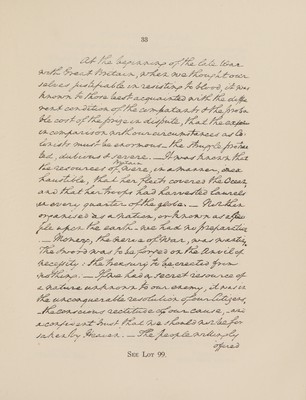 33
At the beginning of the late War
with Great Britain, when we thought our
selves justifiable in resisting to blood, it was
known to those best acquainted with the diffe
rent condition of the combatants & the proba
ble cost of the prize in dispute, that the expence
in comparison with our circumstances as Co
lonists must be enormous — the struggle protrac
ted, dubious & severe. — It was known that
the resources of Britain were, in a manner, inex
haustible, that her fleets covered the Ocean,
and that her troops had harvested laurels
in every quarter of the globe. — Not then
organised as a nation, or known as a peo
ple upon the earth — we had no preparation
— Money, the nerve of War, was wanting.
The Sword was to be forged on the Anvil of
necessity: the treasury to be created from
nothing. — If we had a secret resource of
a nature unknown to our enemy, it was in
the unconquerable resolution of our Citizens,
— the conscious rectitude of our cause, and
a confident trust that we should not be for
saken by Heaven. — The people willingly
offered
See Lot 99.